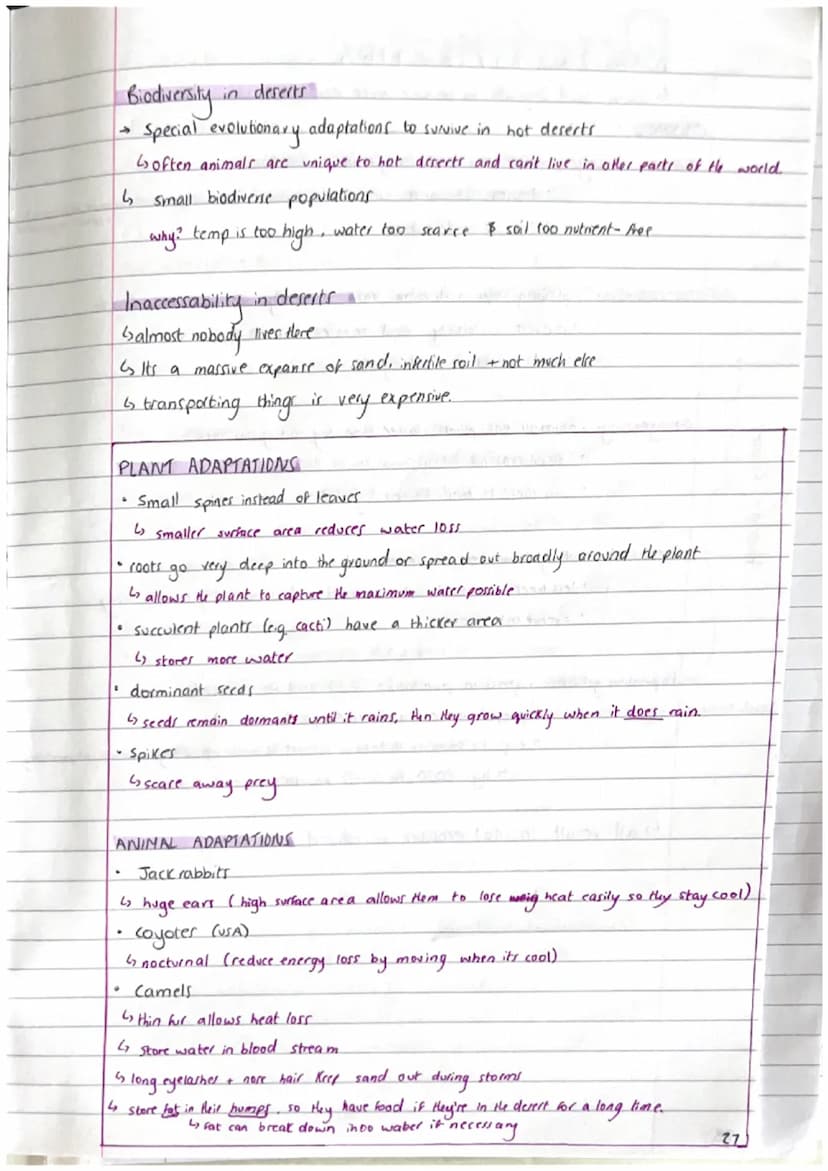 Biodiversity in deserts
→ Special evolutionary adaptations to survive in hot deserts
↳ often animals are unique to hot deserts and can't live in other parts of the world.
↳ small biodiverse populations
why? temp is too high, water too scarce & soil too nutrient-free
Inaccessability in deserts
↳ almost nobody lives there
↳ Its a massive expanse of sand, infertile soil + not much else
↳ transporting things is very expensive.
PLANT ADAPTATIONS
• Small spines instead of leaves
↳ smaller surface area reduces water loss
• roots go very deep into the ground or spread out broadly around the plant
↳ allows the plant to capture the maximum water possible
• succulent plants (e.g. cacti) have a thicker area
↳ stores more water
• dorminant seeds
↳ seeds remain dormants until it rains, then they grow quickly when it does rain.
• Spikes
↳ scare away prey
ANIMAL ADAPTATIONS
• Jack rabbits
↳ huge ears (high surface area allows them to lose heat easily so they stay cool)
• Coyotes (USA)
↳ nocturnal (reduce energy loss by moving when its cool)
• Camels
↳ thin fur allows heat loss
↳ store water in blood stream
↳ long eyelashes + nose hair keep sand out during storms
↳ store fat in their humps, so they have food if they're in the desert for a long time.
↳ fat can break down into water if necessary
27